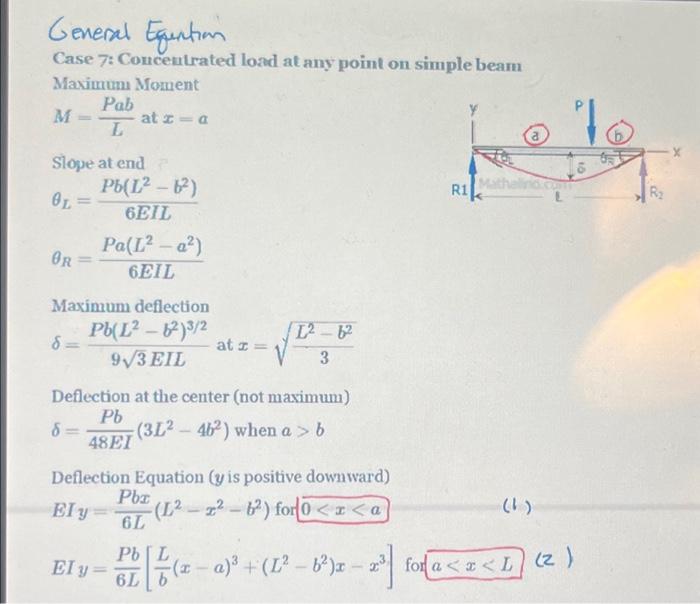 General Equation
Case 7: Concentrated load at any point on simple beam
Maximum Moment
M = Pab/L at x = a
Slope at end
θ_L = Pb(L² − b²)/6EIL
θ_R = Pa(L² − a²)/6EIL
Maximum deflection
δ = Pb(L² − b²)^{3/2}/9√3 EIL at x = √((L² − b²)/3)
Deflection at the center (not maximum)
δ = Pb/48EI (3L² − 4b²) when a > b
Deflection Equation (y is positive downward)
EI y = Pbx/6L (L² − x² − b²) for 0 < x < a (1)
EI y = Pb/6L [L/b (x − a)³ + (L² − b²)x − x³] for a < x < L (2)
y P
a b
x
θ_L δ θ_R
R1 Mathalino.com R₂
L